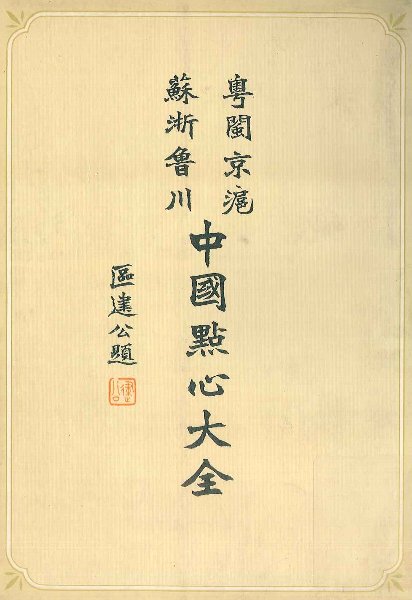 粵閩京滬
蘇浙魯川
中國點心大全
區建公題